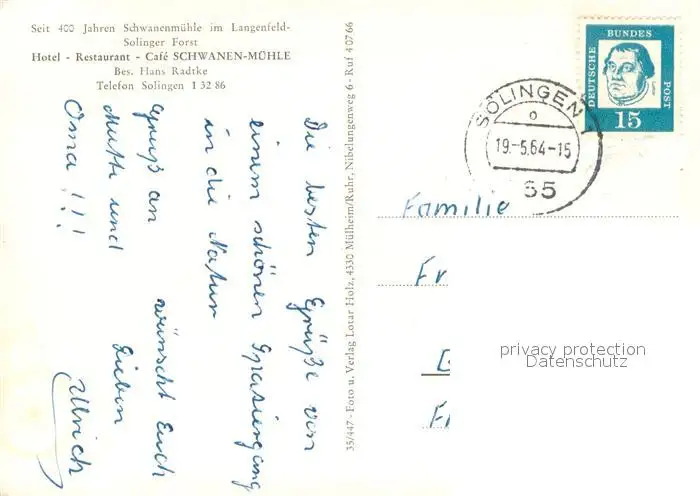 Seit 400 Jahren Schwanenmühle im Langenfeld-
Solinger Forst
Hotel - Restaurant - Café SCHWANEN-MÜHLE
Bes. Hans Radtke
Telefon Solingen 1 32 86
Die besten Grüße von
einem schönen Spaziergang
in die Natur
wünscht Euch
Lieben
Ulrich
Gruß an
Mutti und
Oma!!!
35/447 - Foto u. Verlag Lotar Holz, 4330 Mülheim/Ruhr, Nibelungenweg 6 - Ruf 40766
DEUTSCHE
BUNDES
POST
15
SOLINGEN 1
o
19.-5.64-15
Familie
Fr
privacy protection
Datenschutz